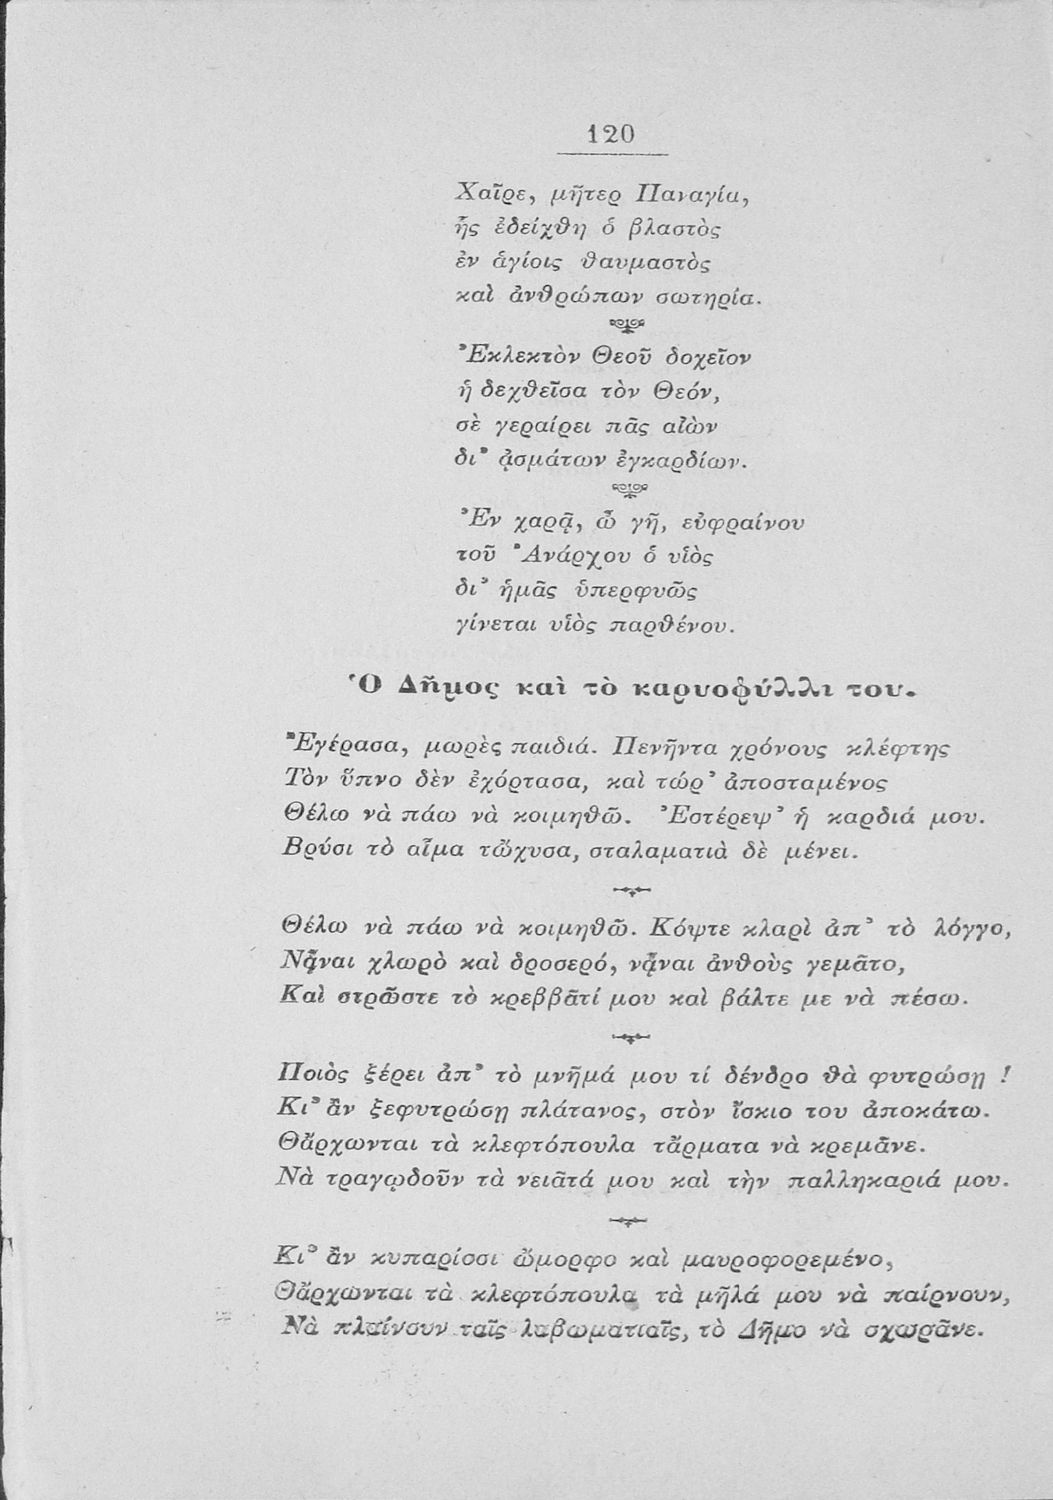 120
Χαῖρε, μῆτερ Παναγία,
ἧς ἐδείχθη ὁ βλαστὸς
ἐν ἁγίοις θαυμαστὸς
καὶ ἀνθρώπων σωτηρία.
Ἐκλεκτὸν Θεοῦ δοχεῖον
ἡ δεχθεῖσα τὸν Θεόν,
σὲ γεραίρει πᾶς αἰὼν
δι᾿ ᾀσμάτων ἐγκαρδίων.
Ἐν χαρᾷ, ὦ γῆ, εὐφραίνου
τοῦ Ἀνάρχου ὁ υἱὸς
δι᾿ ἡμᾶς ὑπερφυῶς
γίνεται υἱὸς παρθένου.
Ὁ Δῆμος καὶ τὸ καρυοφύλλι του.
Ἐγέρασα, μωρὲς παιδιά. Πενῆντα χρόνους κλέφτης
Τὸν ὕπνο δὲν ἐχόρτασα, καὶ τώρ᾿ ἀποσταμένος
Θέλω νὰ πάω νὰ κοιμηθῶ. Ἐστέρεψ᾿ ἡ καρδιά μου.
Βρύσι τὸ αἷμα τὤχυσα, σταλαματιὰ δὲ μένει.
Θέλω νὰ πάω νὰ κοιμηθῶ. Κόψτε κλαρὶ ἀπ᾿ τὸ λόγγο,
Νᾆναι χλωρὸ καὶ δροσερό, νᾆναι ἀνθοὺς γεμᾶτο,
Καὶ στρῶστε τὸ κρεββᾶτί μου καὶ βάλτε με νὰ πέσω.
Ποιὸς ξέρει ἀπ᾿ τὸ μνῆμά μου τί δένδρο θὰ φυτρώσῃ !
Κι᾿ ἂν ξεφυτρώσῃ πλάτανος, στὸν ἴσκιο του ἀποκάτω.
Θἄρχωνται τὰ κλεφτόπουλα τἄρματα νὰ κρεμᾶνε.
Νὰ τραγῳδοῦν τὰ νειᾶτά μου καὶ τὴν παλληκαριά μου.
Κι᾿ ἂν κυπαρίσσι ὤμορφο καὶ μαυροφορεμένο,
Θἄρχωνται τὰ κλεφτόπουλα τὰ μῆλά μου νὰ παίρνουν,
Νὰ πλαίνουν ταῖς λαβωματιαῖς, τὸ Δῆμο νὰ σχωρᾶνε.